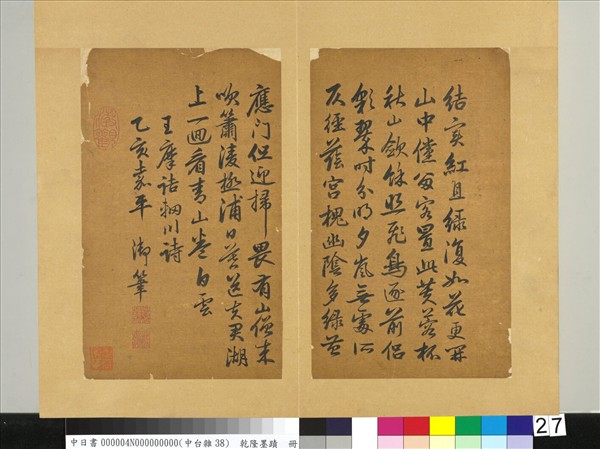 結實紅且綠復如花更開
山中儻留客置此芙蓉杯
秋山斂餘照飛鳥逐前侶
彩翠時分明夕嵐無處所
仄徑蔭宮槐幽陰多綠苔
應門但迎掃畏有山僧來
吹簫凌極浦日暮送夫君湖
上一迴看青山卷白雲
王摩詰輞川詩
乙亥嘉平 御筆
中日書 000004N000000000(中台雜 38) 乾隆墨蹟 冊
27